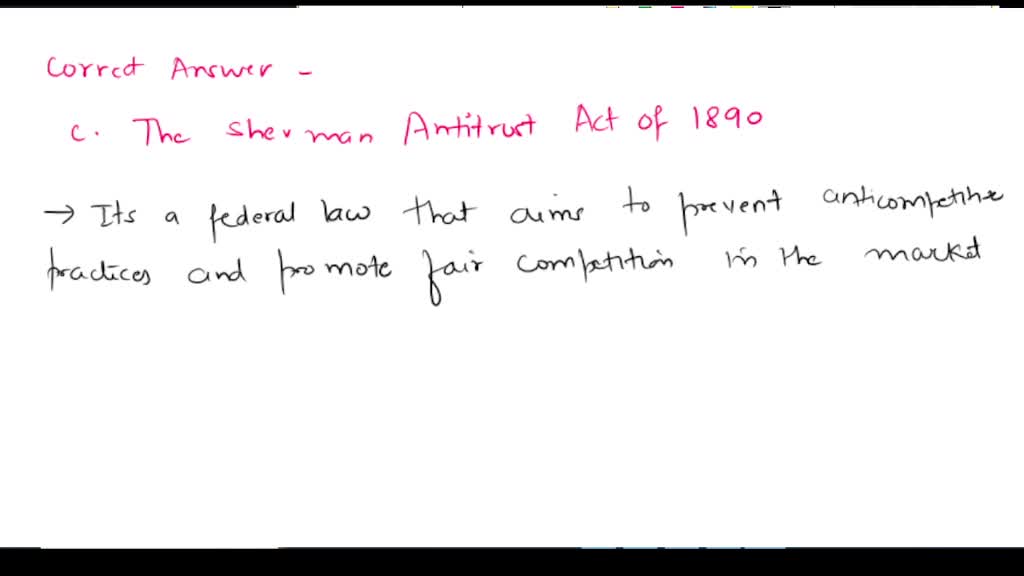 Correct Answer -
c. The Sherman Antitrust Act of 1890
→ Its a federal law that aims to prevent anticompetitive
practices and promote fair competition in the market